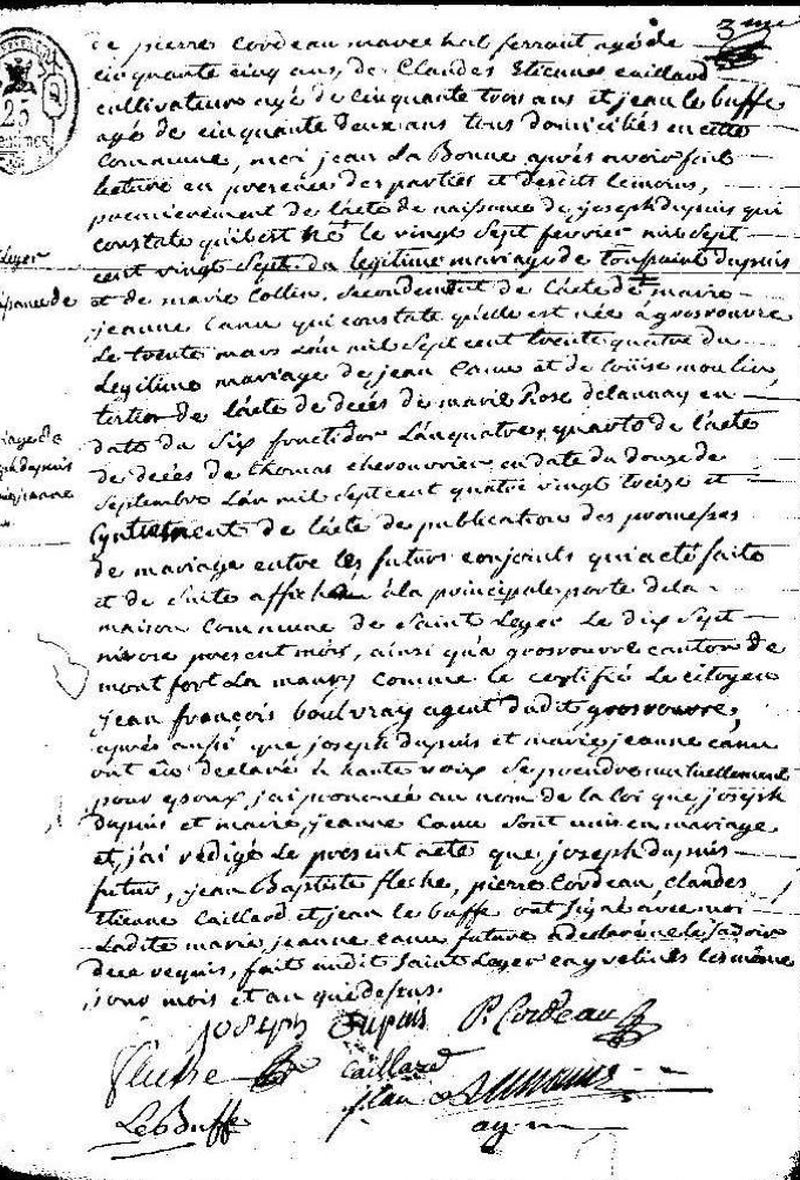 3me
de pierre Cordeau marechal ferrant agé de
cinquante cinq ans, de Claudes Etienne Caillard
cultivateur agé de cinquante trois ans et jean le buffe
agé de cinquante deux ans tous domiciliés en cette
Commune, moi jean La Bonne après avoir fait
lecture en presence des parties et desdits temoins,
premierement de l'acte de naissance de joseph dupuis qui
constate qu'il est né le vingt Sept fevrier mil Sept
cent vingt Sept du légitime mariage de toussaint dupuis
et de marie Collin, Secondement de l'acte de marie
jeanne Canu qui constate qu'elle est née a grosrouvre
Le trente mars L'an mil Sept cent trente quatre du
Legitime mariage de jean Canu et de Louise moulin
tertio de l'acte de decés de marie Rose delaunay en
date du Six fructidor L'an quatre, quarto de l'acte
de decés de thomas chevouvrier en date du douze de
Septembre L'an mil Sept cent quatre vingt treize et
de l'acte de publication des promesses
de mariage entre les futurs conjoints qui a eté faite
et de Suite affichée à la principale porte de la
maison Commune de Saint Leger Le dix Sept
nivose present mois, ainsi qu'a grosrouvre canton de
montfort La maury comme le certifié Le citoyen
jean françois boulvray agent dudit grosrouvre,
après aussi que joseph dupuis et marie jeanne canu
ont eu declaré à haute voix Se prendre mutuellement
pour epoux, j'ai prononcé au nom de la loi que joseph
dupuis et marie jeanne Canu Sont unis en mariage
et j'ai redigé Le present acte que joseph dupuis
futur, jean Baptiste fleche, pierre Cordeau, claudes
Etienne Caillard et jean le buffe ont Signé avec moi
Ladite marie jeanne canu future a declaré ne le Savoir
de ce requis, fait audit Saint Leger en yvelines les même
jour mois et an que dessus.
joseph Dupuis P. Cordeau
fleche Caillard
Le Buffe jean
25
Leger
naissance de
mariage de
joseph dupuis
marie jeanne